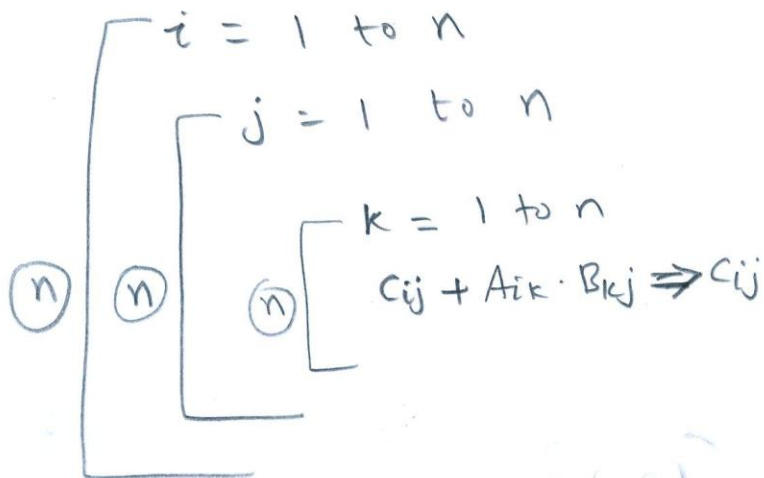 i = 1 to n
j = 1 to n
k = 1 to n
n n n Cij + Aik · Bkj ⇒ Cij